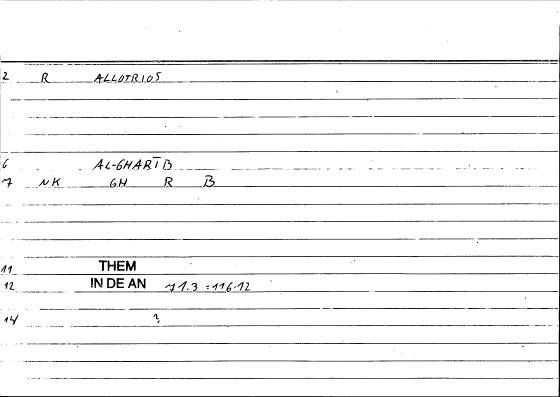 2 R ALLOTRIOS
6 AL-GHARĪB
7 NK GH R B
11 THEM
12 IN DE AN 71.3 = 116.12
14 ?